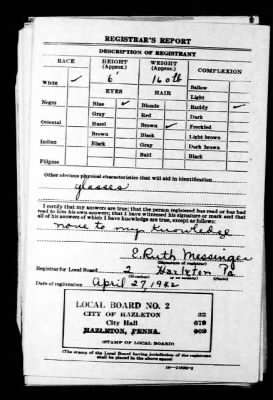 REGISTRAR'S REPORT
DESCRIPTION OF REGISTRANT
RACE HEIGHT (Approx.) WEIGHT (Approx.) COMPLEXION
6' 160 lb
White ✓ Sallow
EYES HAIR Light
Negro Blue ✓ Blonde Ruddy ✓
Gray Red Dark
Oriental Hazel Brown ✓ Freckled
Brown Black Light brown
Indian Black Gray Dark brown
Bald Black
Filipino
Other obvious physical characteristics that will aid in identification
glasses
I certify that my answers are true; that the person registered has read or has had
read to him his own answers; that I have witnessed his signature or mark and that
all of his answers of which I have knowledge are true, except as follows:
none to my knowledge
E. Ruth Messinger
(Signature of registrar)
Registrar for Local Board 2 Hazleton Pa
(Number) (City or county) (State)
Date of registration April 27, 1942
LOCAL BOARD NO. 2
CITY OF HAZLETON 32
City Hall 679
HAZLETON, PENNA. 902
(STAMP OF LOCAL BOARD)
(The stamp of the Local Board having jurisdiction of the registrant
shall be placed in the above space)